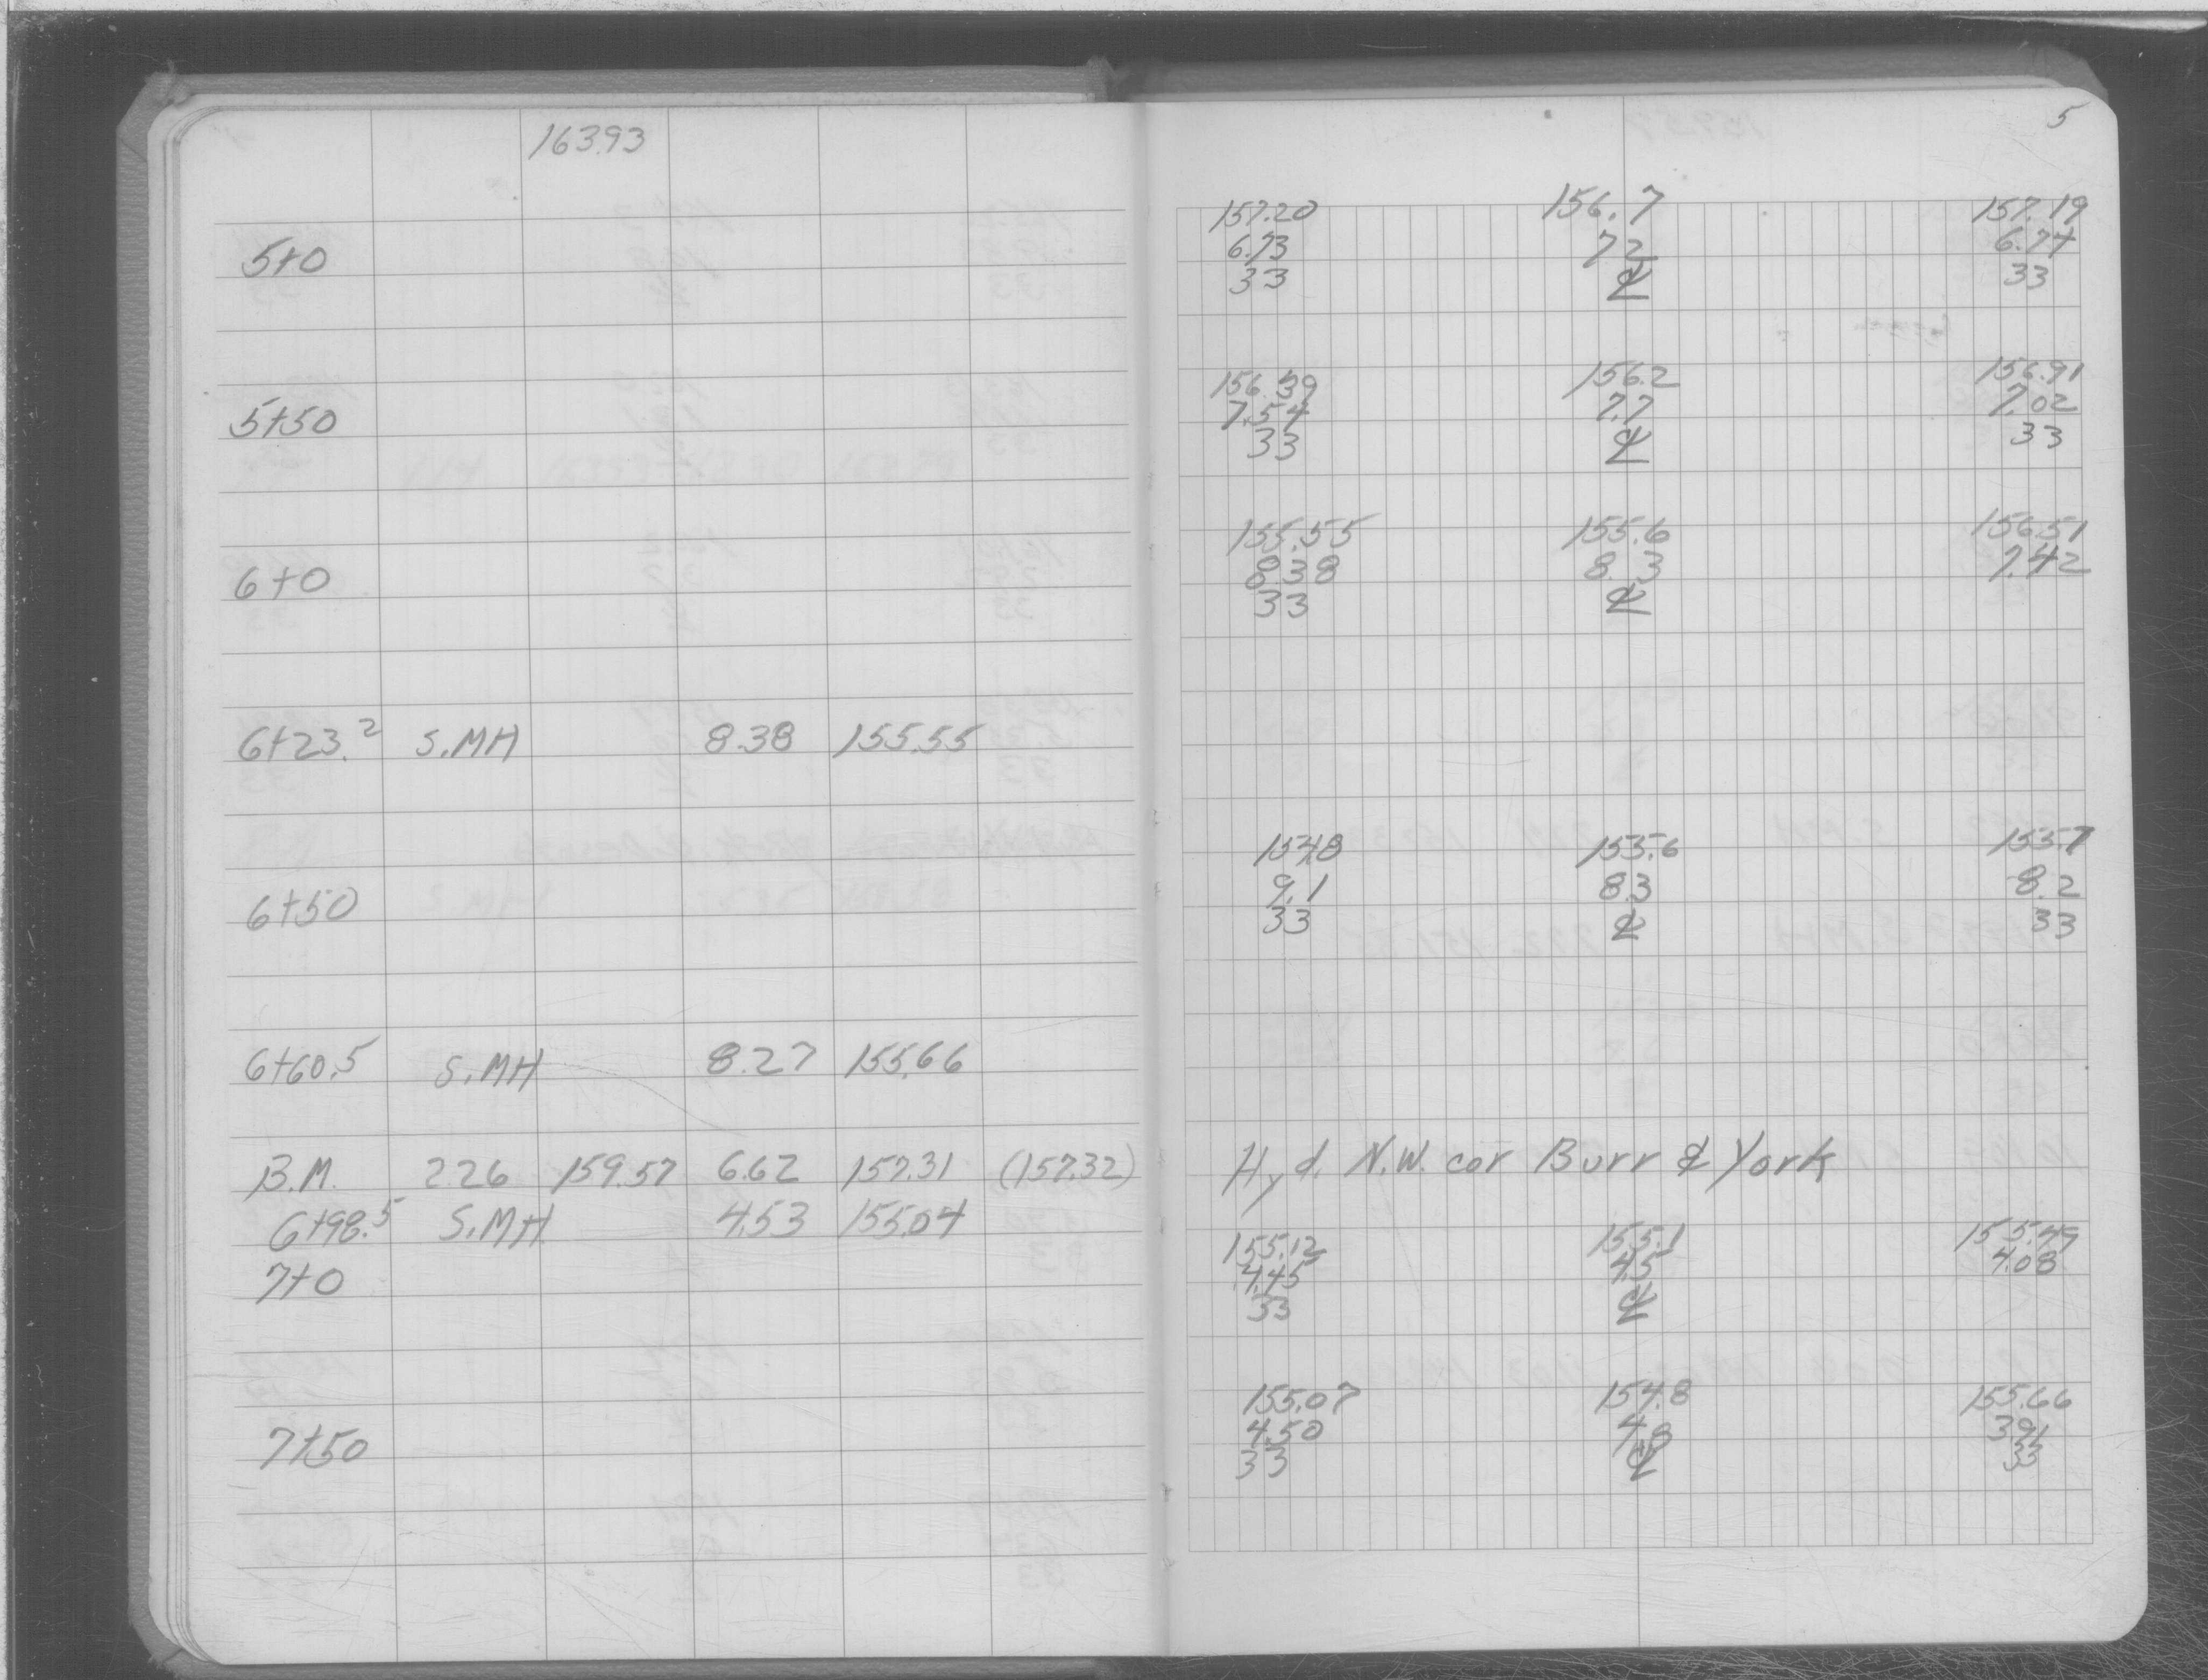 163.93
5+0
5+50
6+0
6+23.2 S.MH 8.38 155.55
6+50
6+60.5 S.MH 8.27 155.66
B.M. 2.26 159.57 6.62 157.31 (157.32)
6+98.5 S.MH 4.53 155.04
7+0
7+50
5
157.20 156.7 157.19
6.73 7.2 6.74
33 ℄ 33
156.39 156.2 156.91
7.54 7.7 7.02
33 ℄ 33
155.55 155.6 156.51
8.38 8.3 7.42
33 ℄
154.8 155.6 155.7
9.1 8.3 8.2
33 ℄ 33
Hyd. N.W. cor Burr & York
155.12 155.1 155.49
4.45 4.5 4.08
33 ℄
155.07 154.8 155.66
4.50 4.8 3.91
33 ℄ 33